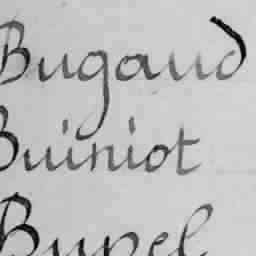 Bugaud
Buiniot
Bunel